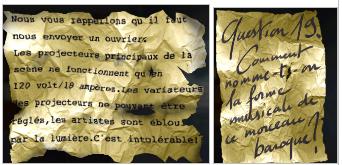 Nous vous rappellons qu'il faut
nous envoyer un ouvrier.
Les projecteurs principaux de la
scène ne fonctionnent qu'en
120 volt/19 ampères.Les variateurs
des projecteurs ne pouvant être
réglés,les artistes sont éblouis
par la lumière.C'est intolérable!
Question 19.
Comment
nomme-t-on
la forme
musicale de
ce morceau
baroque?